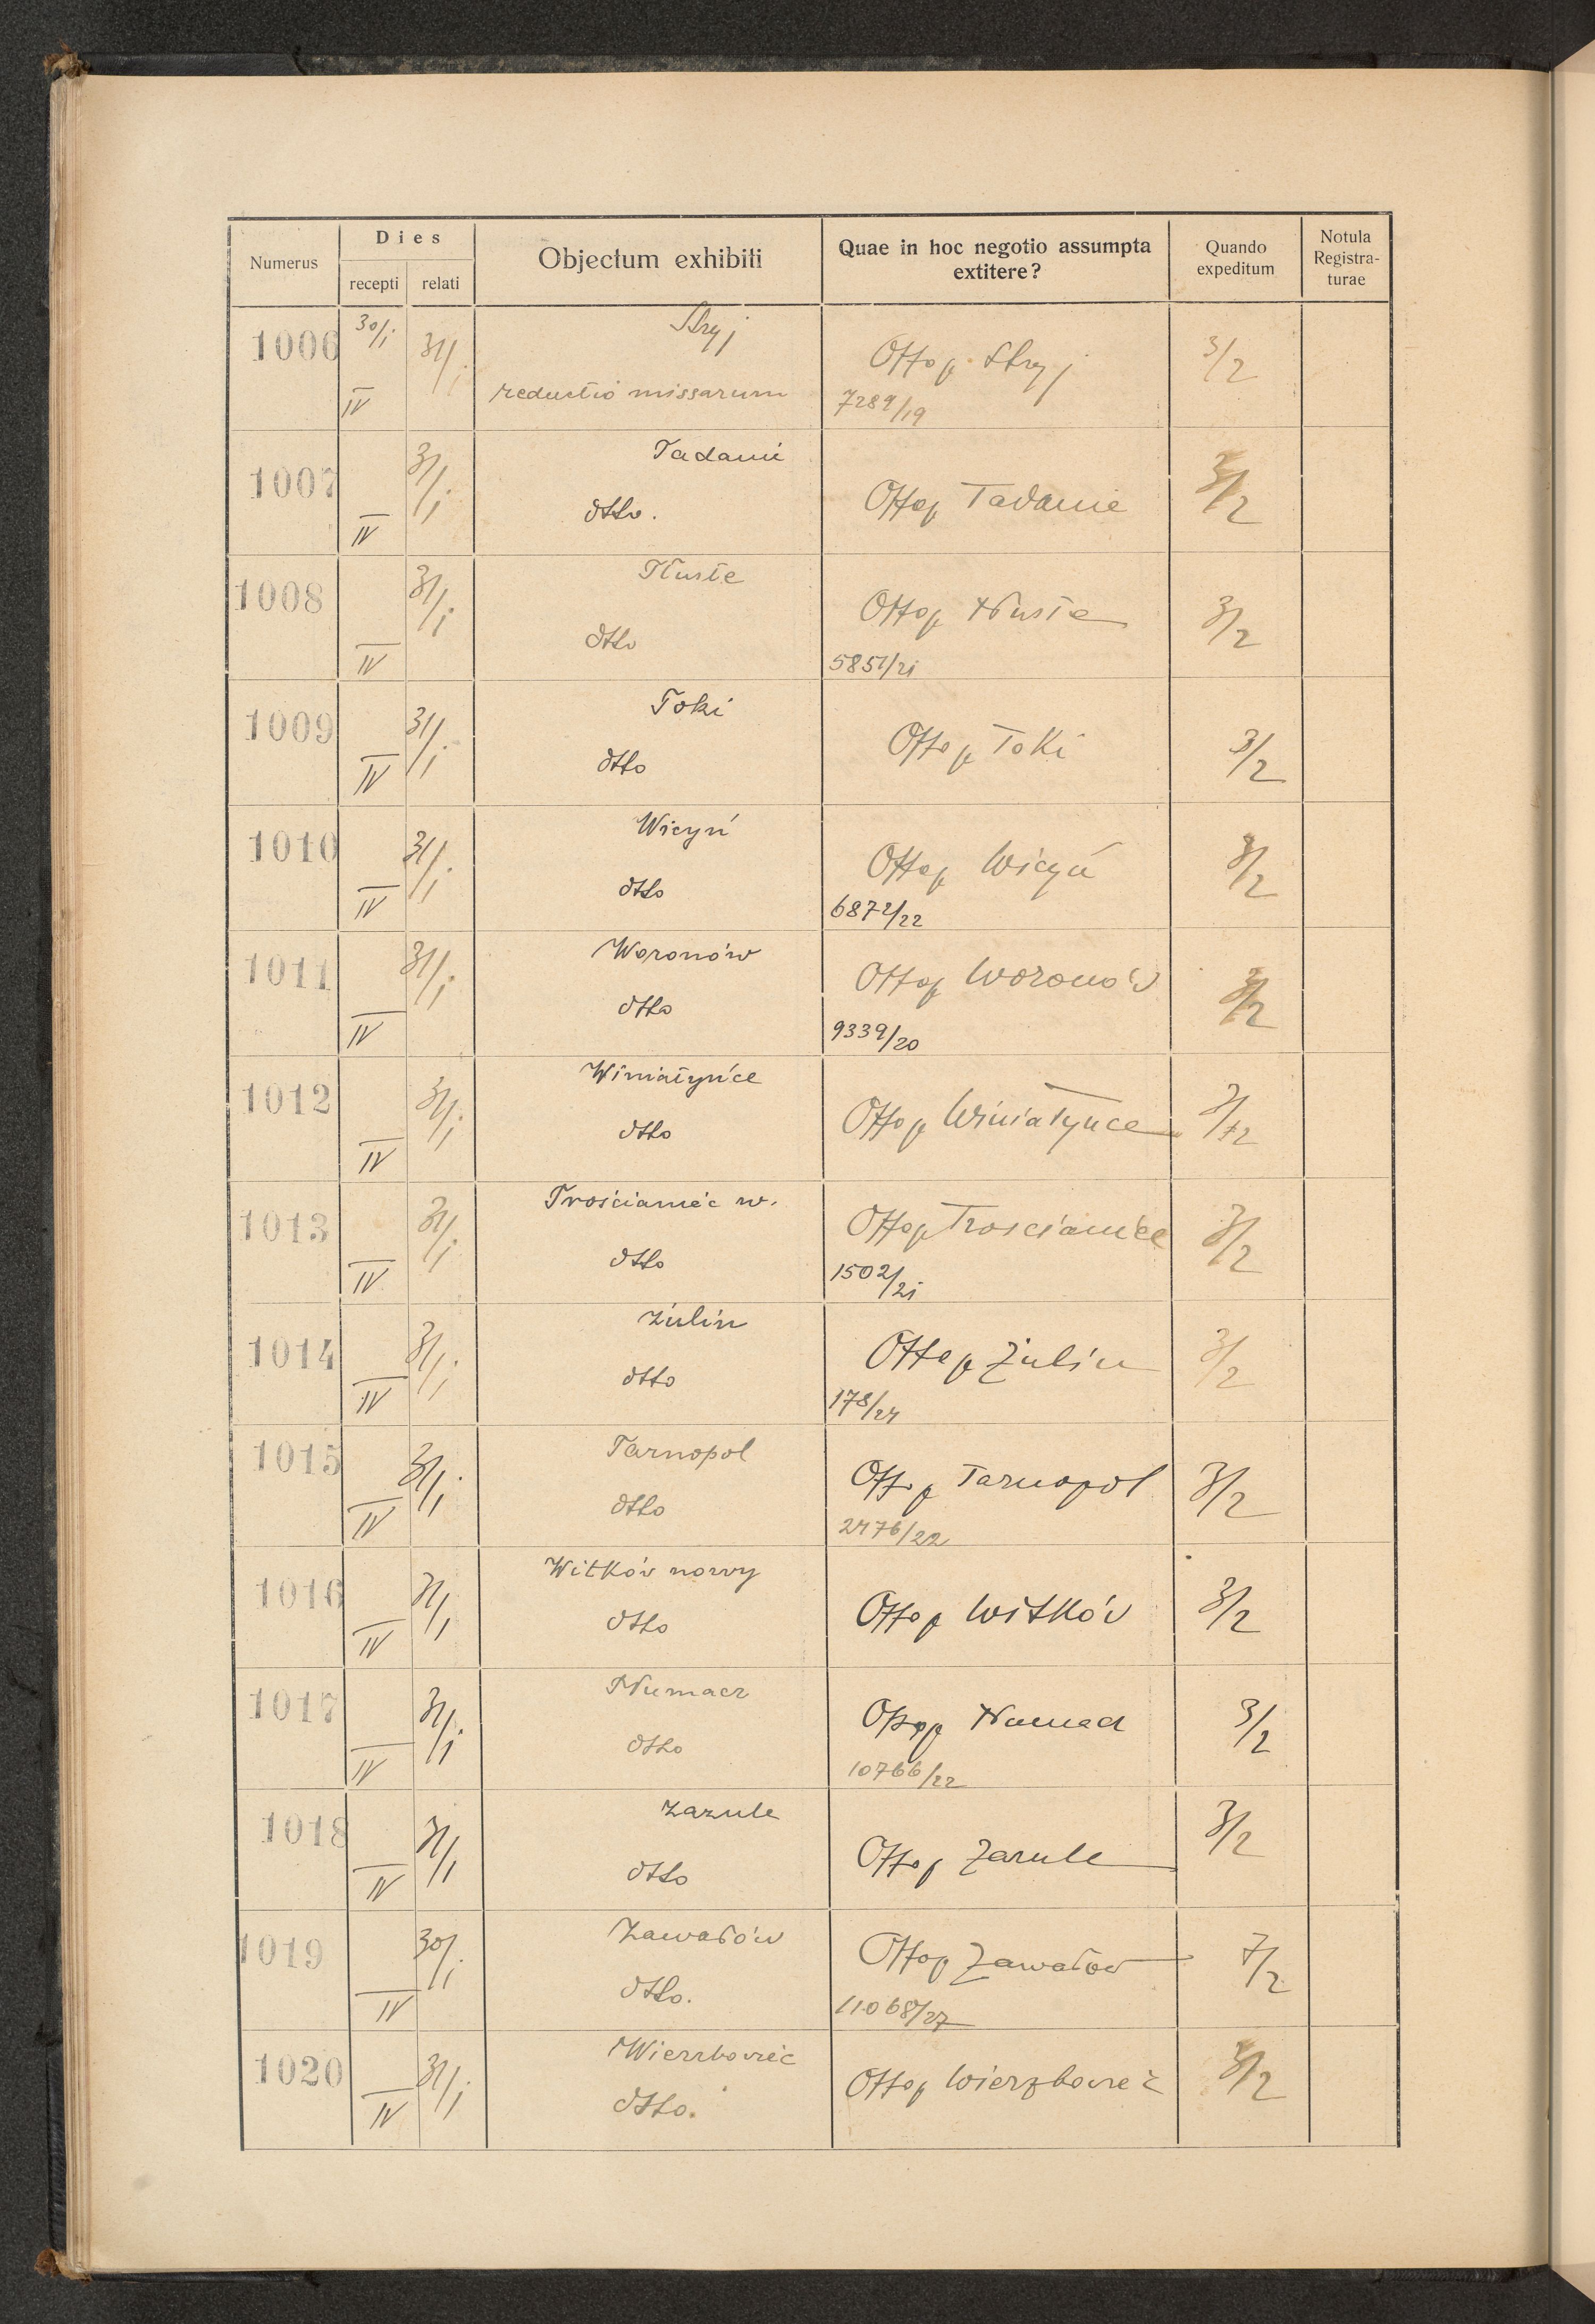 Numerus
Dies
recepti relati
Objectum exhibiti
Quae in hoc negotio assumpta
extitere?
Quando
expeditum
Notula
Registra-
turae
1006 30/i 31/i Stryj Stryj 3/2
IV reductio missarum 7289/19
1007 31/i Tadanie Tadanie 3/2
IV dtto.
1008 31/i Tłuste Tłuste 3/2
IV dtto 5851/21
1009 31/i Toki Toki 3/2
IV dtto
1010 31/i Wicyń Wicyń 3/2
IV dtto 6872/22
1011 31/i Woronów Woronów 3/2
IV dtto 9339/20
1012 31/i Winiatyńce Winiatynce
IV dtto
1013 31/i Trościaniec w. Trościaniec 3/2
IV dtto 1502/21
1014 31/i Żulin Żulin 3/2
IV dtto 178/24
1015 31/i Tarnopol Tarnopol 3/2
IV dtto 2476/22
1016 31/1 Witków nowy Witków 3/2
IV dtto
1017 31/i Tłumacz Tłumacz 3/2
IV dtto 10766/22
1018 31/1 Zazule Zazule 3/2
IV dtto
1019 30/i Zawałów Zawałów 7/2
IV dtto. 11068/27
1020 31/i Wierzbowiec Wierzbowiec 3/2
IV dtto.